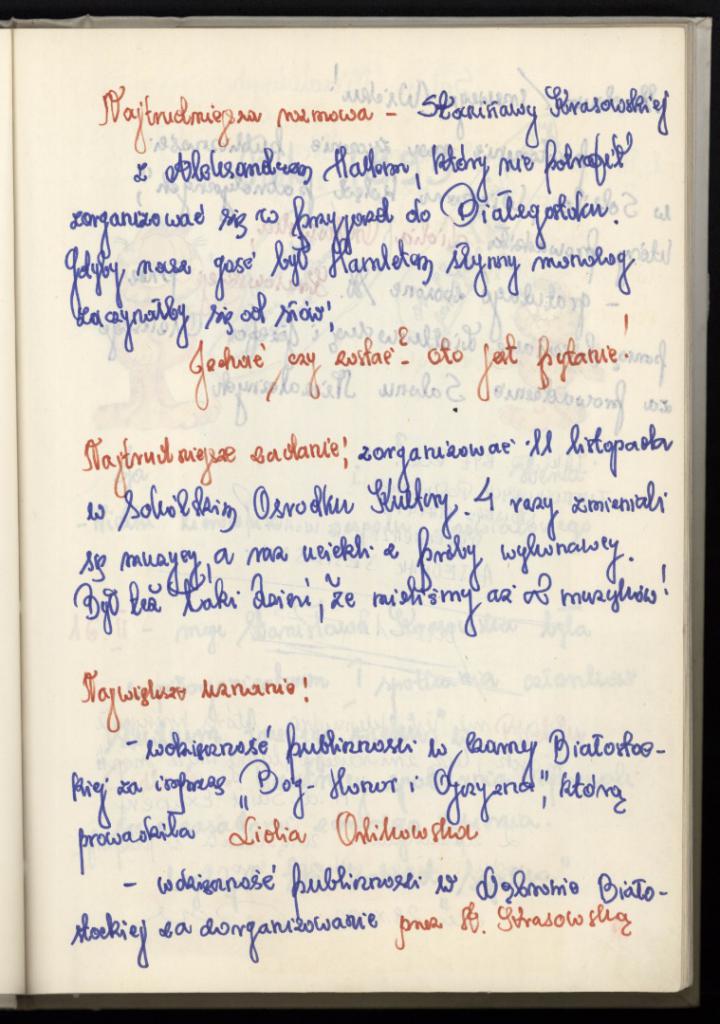 Najtrudniejsza rozmowa - Stanisławy Krasowskiej
z Aleksandrem Hallem, który nie potrafił
zorganizować się w przyjazd do Białegostoku.
Gdyby nasz gość był Hamletem, słynny monolog
zaczynałby się od słów!
Jechać czy zostać - oto jest pytanie!
Najtrudniejsze zadanie! zorganizować 11 listopada
w Sokólskim Ośrodku Kultury. 4 razy zmieniali
się muzycy, a raz uciekli z próby wykonawcy.
Był też taki dzień, że mieliśmy aż 2 muzyków!
Największe uznanie!
- wdzięczność publiczności w Czarnej Białostoc-
kiej za imprezę "Bóg - Honor i Ojczyzna", którą
prowadziła Lidia Ordikowska
- wdzięczność publiczności w Dąbrowie Biało-
stockiej za zorganizowanie przez St. Krasowską